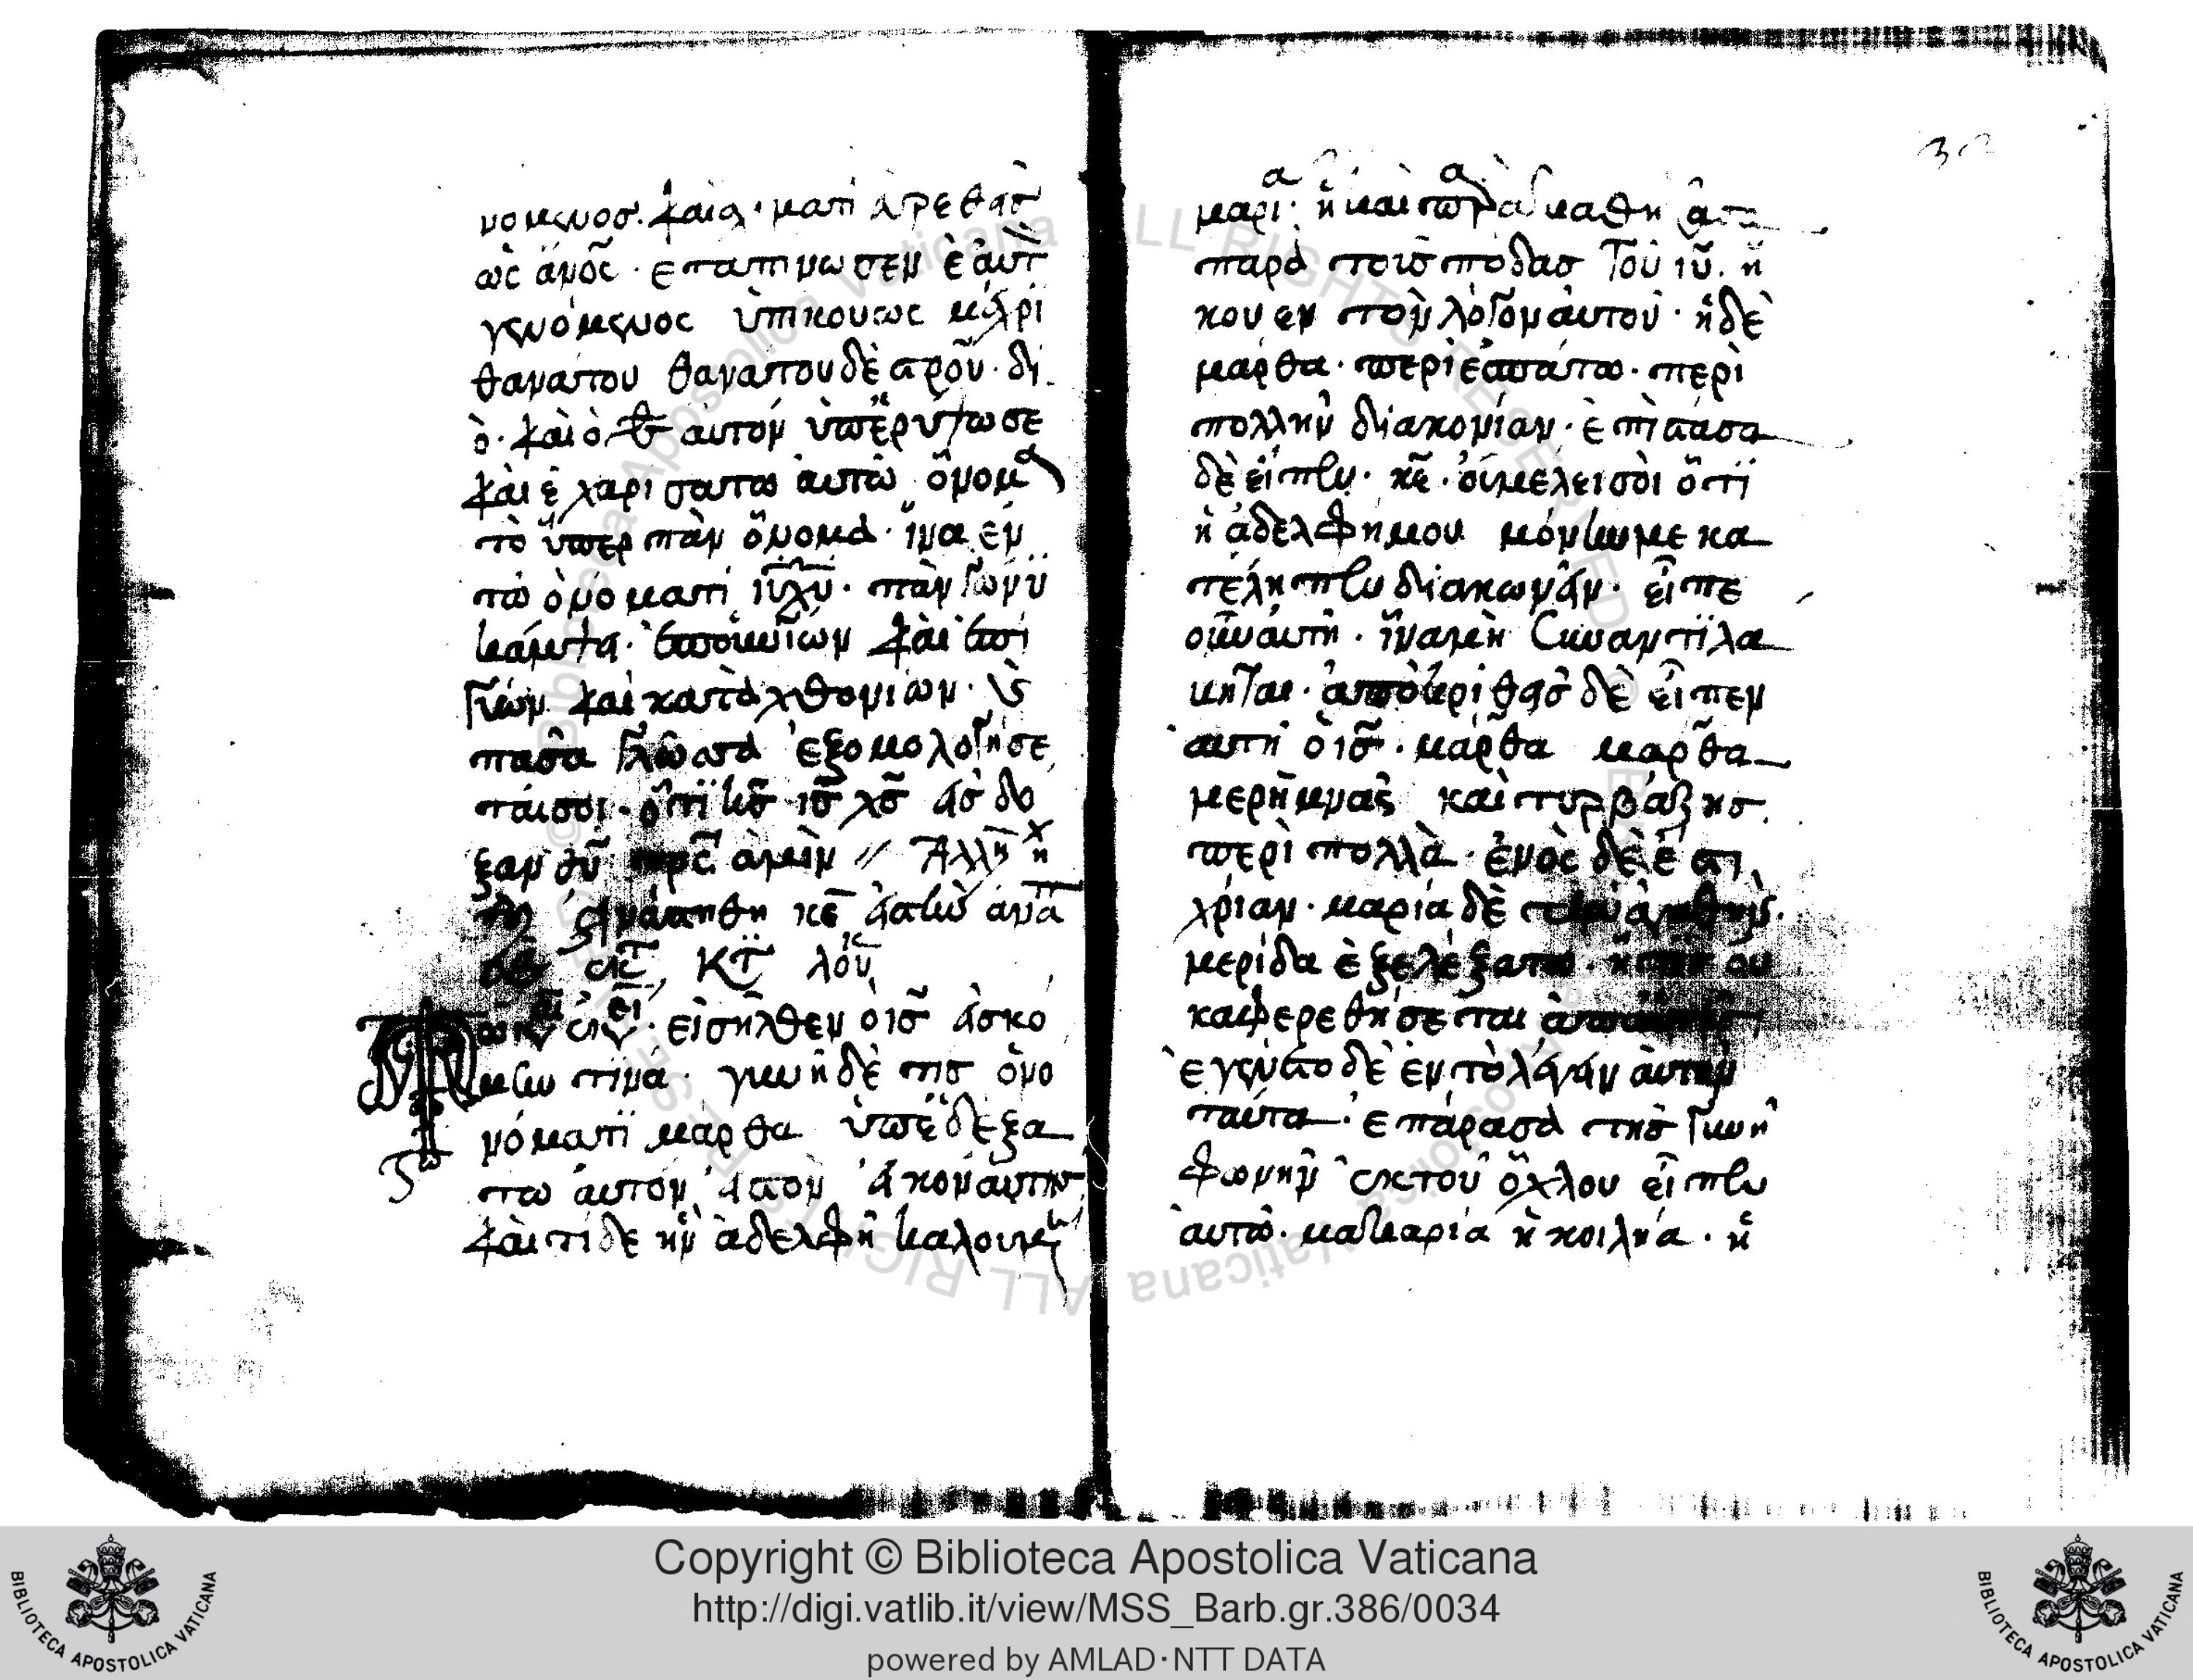 νομενοσ. και σχηματι ἑυρεθεὶσ
ὡς ἀνο̅ς · εταπινωσεν ἑαυτ
γενόμενος ὑπικουως μέχρι
θανατου θανατου δὲ στρο̅υ · δι
ὸ · καὶ ὁ θ̅ς αυτον ὑπερυψωσε
και ἐχαρισατω αυτῶ ὄνομα
τὸ ὕπερ πὰν ὄνομα · ἵνα ἐν
τῶ ὀνοματι ιυ̅ χυ̅ · πὰν γώνϋ
κάμψη · ἐπουνίων καὶ ἐπι
γιῶν και καταχθονιων · κ̀
πασα γλῶσσα ἐξομολογήσε
ται σοι · ὅτϊ κσ̅ ισ̅ χσ̅ εἰσ δο
ξαν θυ̅ πρς̅ ἀμὶν // Ἀλλη ηχ
ἀνάστηθι κε̅ εἰς τὴν ἀνα
εκ τ κτ̈ λου
τω καιρω εκειν · εἰσῆλθεν ὁ ισ̅ εἰσ κο
μην τινά · γυνὴ δὲ τισ ὀνο
νόματϊ μαρθα ὑπεδέξα
τω αυτόν εἰς τὸν ἐικον αυτησ
καὶ τίδε ἠν ἀδελφὴ καλουμεν
30
μαρία · ἣ και παρακαθησασα
παρὰ τοισ ποδασ τοῦ ιυ̅ · ἤ
κουεν τὸν λόγον αυτου · ἡ δὲ
μαρθα · περιεσπάτω · περὶ
πολλην διακονίαν · ἐπιστάσα
δὲ εἶπεν · κε̅ · οὐ μέλει σὸι ὅτϊ
ἡ ἀδελφη μου μόνην με κα
τέληπεν διακωνᾶν · εἶπε
οὖν ἀυτὴ · ἵνα μὴ συναντϊλα
μηται · ἀποκριθεὶσ δὲ εἶπεν
αυτὴ ὁ ισ̅ · μάρθα μαρθα
μερημνας καὶ τυρβάζησ
περὶ πολλὰ · ἑνὸς δὲ ἐστι
χρίαν · μαρία δὲ την ἀγαθην
μερίδα ἐξελέξατω · ητισ ου
καφερεθησεται ἀπ αυτῆς
ἐγένετο δὲ ἐν τὸ λέγην αυτον
ταύτα · ἐπάρασά τησ γυνὴ
φωνὴν ἐκ τοῦ ὄχλου εἶπεν
αυτῶ · μακαρία ἡ κοιλήα · ἡ
Copyright © Biblioteca Apostolica Vaticana
http://digi.vatlib.it/view/MSS_Barb.gr.386/0034
powered by AMLAD·NTT DATA
BIBLIOTECA APOSTOLICA VATICANA
BIBLIOTECA APOSTOLICA VATICANA